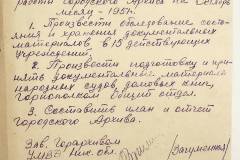 работы городского Архива на Октябрь
месяц - 1957г.
1. Произвести обследование состо-
яния и хранения документальных
материалов в 15 действующих
учреждений.
2. Произвести подготовку и при-
нять документальные материалы
народных судов, домовых книг,
горисполком общий отдел.
3. Составить план и отчет
городского Архива.
Зав. Горархивом
УМВД Ник. обл.